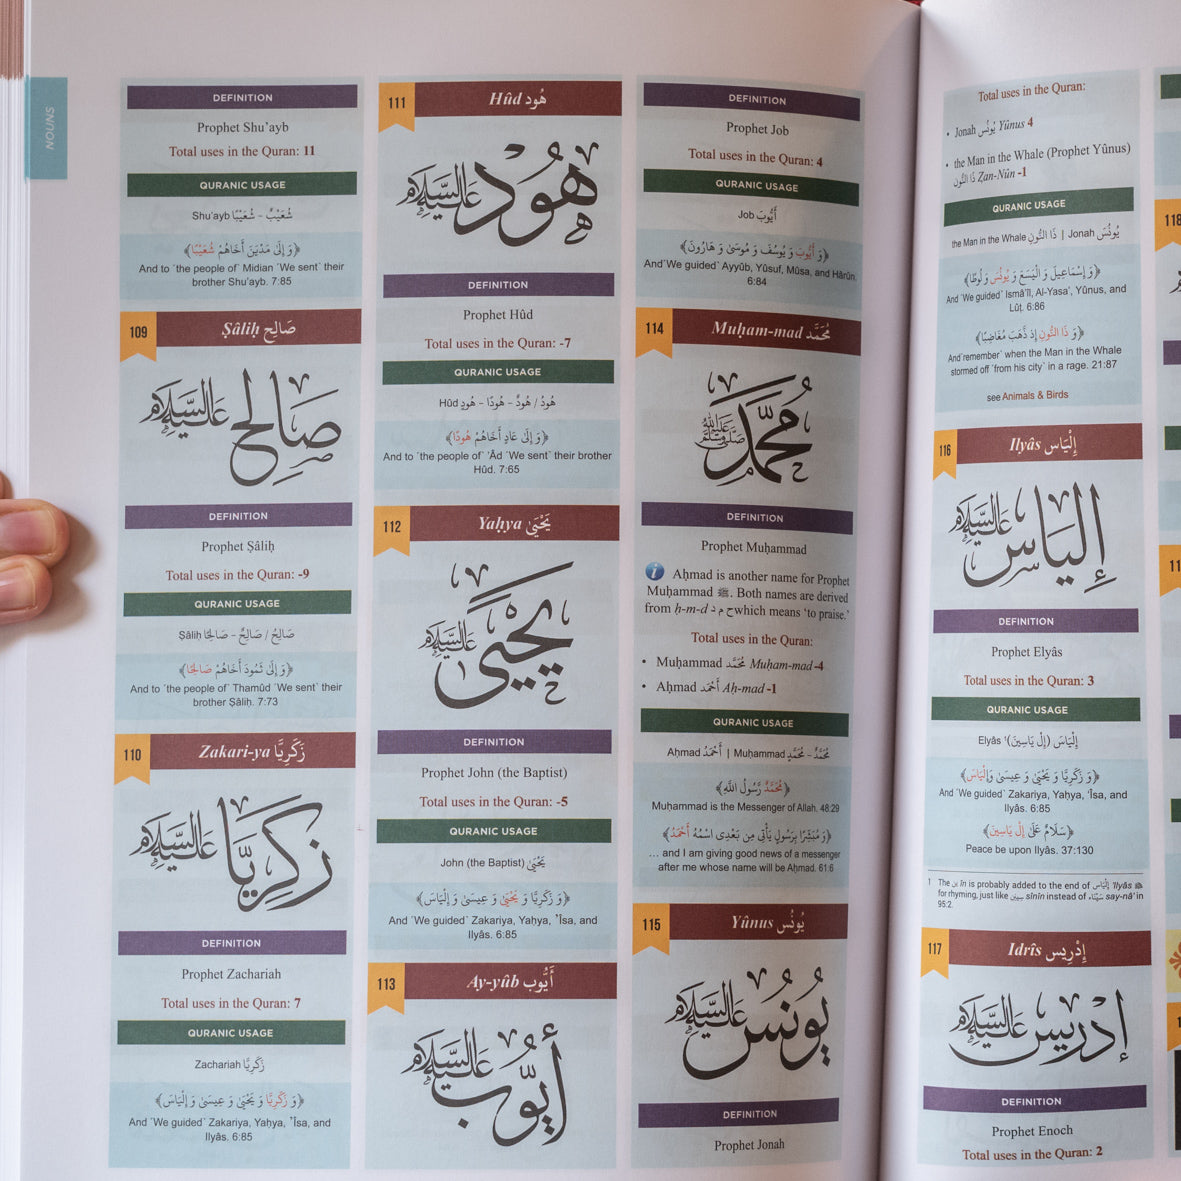 NOUNS
DEFINITION
Prophet Shu’ayb
Total uses in the Quran: 11
QURANIC USAGE
Shu’ayb شُعَيْبٌ – شُعَيْبًا
﴿وَ إِلَىٰ مَدْيَنَ أَخَاهُمْ شُعَيْبًا﴾
And to ´the people of` Midian ´We sent` their
brother Shu’ayb. 7:85
109
Ṣâliḥ صَالِح
صَالِح عَلَيْهِ السَّلَام
DEFINITION
Prophet Ṣâliḥ
Total uses in the Quran: -9
QURANIC USAGE
Ṣâliḥ صَالِحُ / صَالِحٌ – صَالِحًا
﴿وَ إِلَىٰ ثَمُودَ أَخَاهُمْ صَالِحًا﴾
And to ´the people of` Thamûd ´We sent` their
brother Ṣâliḥ. 7:73
110
Zakari-ya زَكَرِيَّا
زَكَرِيَّا عَلَيْهِ السَّلَام
DEFINITION
Prophet Zachariah
Total uses in the Quran: 7
QURANIC USAGE
Zachariah زَكَرِيَّا
﴿وَ زَكَرِيَّا وَ يَحْيَىٰ وَ عِيسَىٰ وَ إِلْيَاسَ﴾
And ´We guided` Zakariya, Yaḥya, ’Îsa, and
Ilyâs. 6:85
111
Hûd هُود
هُود عَلَيْهِ السَّلَام
DEFINITION
Prophet Hûd
Total uses in the Quran: -7
QURANIC USAGE
Hûd هُودُ / هُودٌ – هُودًا – هُودٍ
﴿وَ إِلَىٰ عَادٍ أَخَاهُمْ هُودًا﴾
And to ´the people of` ’Âd ´We sent` their brother
Hûd. 7:65
112
Yaḥya يَحْيَىٰ
يَحْيَىٰ عَلَيْهِ السَّلَام
DEFINITION
Prophet John (the Baptist)
Total uses in the Quran: -5
QURANIC USAGE
John (the Baptist) يَحْيَىٰ
﴿وَ زَكَرِيَّا وَ يَحْيَىٰ وَ عِيسَىٰ وَ إِلْيَاسَ﴾
And ´We guided` Zakariya, Yaḥya, ’Îsa, and
Ilyâs. 6:85
113
Ay-yûb أَيُّوب
أَيُّوب عَلَيْهِ السَّلَام
DEFINITION
Prophet Job
Total uses in the Quran: 4
QURANIC USAGE
Job أَيُّوبَ
﴿وَ أَيُّوبَ وَ يُوسُفَ وَ مُوسَىٰ وَ هَارُونَ﴾
And ´We guided` Ayyûb, Yûsuf, Mûsa, and Hârûn.
6:84
114
Muḥam-mad مُحَمَّد
مُحَمَّد صَلَّى اللَّهُ عَلَيْهِ وَسَلَّم
DEFINITION
Prophet Muḥammad
Aḥmad is another name for Prophet
Muḥammad ﷺ. Both names are derived
from ḥ-m-d ح م د which means ‘to praise.’
Total uses in the Quran:
• Muḥammad مُحَمَّد Muḥam-mad -4
• Aḥmad أَحْمَد Aḥ-mad -1
QURANIC USAGE
Aḥmad أَحْمَدُ | Muḥammad مُحَمَّدٌ – مُحَمَّدٍ
﴿مُحَمَّدٌ رَسُولُ اللَّهِ﴾
Muḥammad is the Messenger of Allah. 48:29
﴿وَ مُبَشِّرًا بِرَسُولٍ يَأْتِي مِن بَعْدِي اسْمُهُ أَحْمَدُ﴾
… and I am giving good news of a messenger
after me whose name will be Aḥmad. 61:6
115
Yûnus يُونُس
يُونُس عَلَيْهِ السَّلَام
DEFINITION
Prophet Jonah
Total uses in the Quran:
• Jonah يُونُس Yûnus 4
• the Man in the Whale (Prophet Yûnus)
ذَا النُّون Zan-Nûn -1
QURANIC USAGE
the Man in the Whale ذَا النُّونِ | Jonah يُونُسَ
﴿وَ إِسْمَاعِيلَ وَ الْيَسَعَ وَ يُونُسَ وَ لُوطًا﴾
And ´We guided` Ismâ’îl, Al-Yasa’, Yûnus, and
Lûṭ. 6:86
﴿وَ ذَا النُّونِ إِذ ذَّهَبَ مُغَاضِبًا﴾
And ´remember` when the Man in the Whale
stormed off ´from his city` in a rage. 21:87
see Animals & Birds
116
Ilyâs إِلْيَاس
إِلْيَاس عَلَيْهِ السَّلَام
DEFINITION
Prophet Elyâs
Total uses in the Quran: 3
QURANIC USAGE
Elyâs ¹(إِلْيَاسَ (إِلْ يَاسِينَ
﴿وَ زَكَرِيَّا وَ يَحْيَىٰ وَ عِيسَىٰ وَإِلْيَاسَ﴾
And ´We guided` Zakariya, Yaḥya, ’Îsa, and
Ilyâs. 6:85
﴿سَلَامٌ عَلَىٰ إِلْ يَاسِينَ﴾
Peace be upon Ilyâs. 37:130
1 The ين în is probably added to the end of إِلْيَاس ’Ilyâs
for rhyming, just like سِينِين sînîn instead of سَيْنَاء say-nâ’ in
95:2.
117
Idrîs إِدْرِيس
إِدْرِيس عَلَيْهِ السَّلَام
DEFINITION
Prophet Enoch
Total uses in the Quran: 2
118